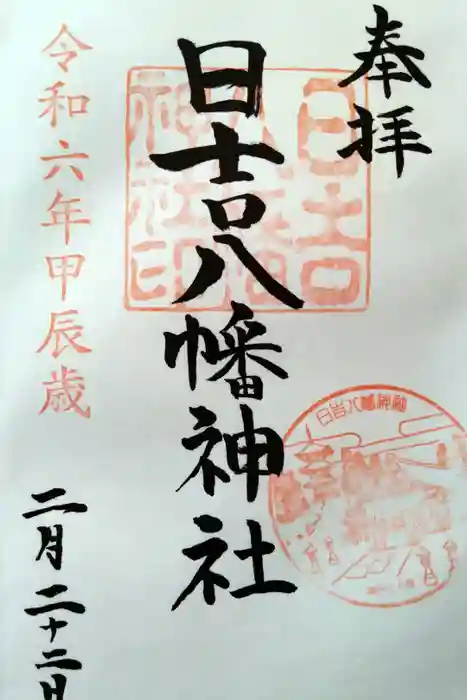 奉拝
日吉八幡神社
日吉八幡神社印
令和六年甲辰歳
二月二十二日
日吉八幡神社